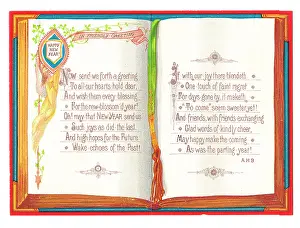 A FRIENDLY GREETING
HAPPY
NEW
YEAR
Now send we forth a greeting
To all our hearts hold dear,
And wish them every blessing
For the new-blossom'd year!
Oh! may that NEW YEAR send us
Such joys as did the last,
And high hopes for the Future
Wake echoes of the Past!
If with our joy there blendeth
One touch of faint regret
For days gone by, it maketh
To come seem sweeter yet!
And friends, with friends exchanging
Glad words of kindly cheer,
May happy make the coming
As was the parting year!
A.H.B